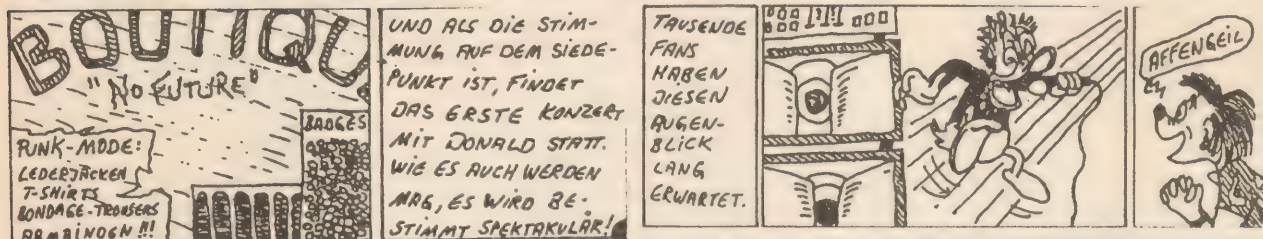 BOUTIQU
"NO FUTURE"
BADGES
PUNK-MODE:
LEDERJACKEN
T-SHIRTS
BONDAGE-TROUSERS
ARMBINDEN!!!
UND ALS DIE STIM-
MUNG AUF DEM SIEDE-
PUNKT IST, FINDET
DAS ERSTE KONZERT
MIT DONALD STATT.
WIE ES AUCH WERDEN
MAG, ES WIRD BE-
STIMMT SPEKTAKULÄR!
TAUSENDE
FANS
HABEN
DIESEN
AUGEN-
BLICK
LANG
ERWARTET.
AFFENGEIL
EY